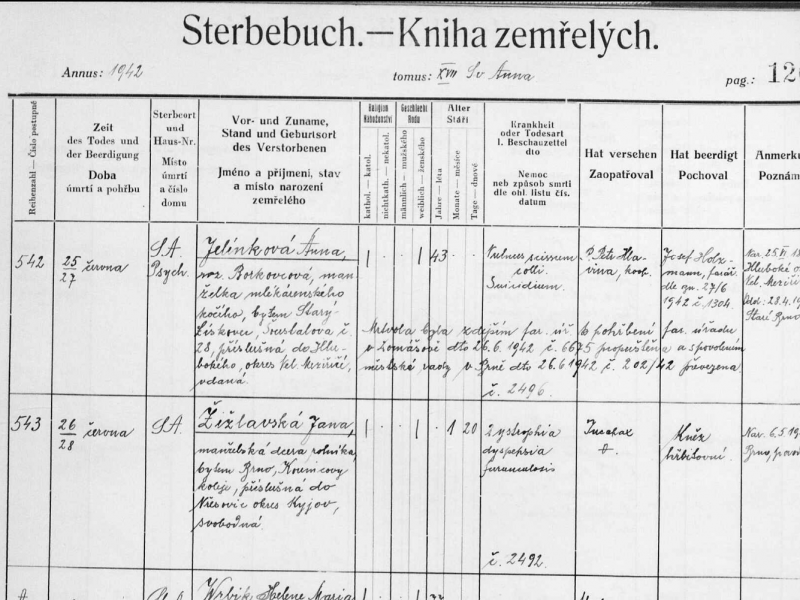 Sterbebuch.—Kniha zemřelých.
Annus: 1942 tomus: XVII Sv Anna pag.: 120
Reihenzahl — Číslo postupné
Zeit
des Todes und
der Beerdigung
Doba
úmrtí a pohřbu
Sterbeort
und
Haus-Nr.
Místo
úmrtí
a číslo
domu
Vor- und Zuname,
Stand und Geburtsort
des Verstorbenen
Jméno a příjmení, stav
a místo narození
zemřelého
Religion
Náboženství
kathol. — katol.
nichtkath. — nekatol.
Geschlecht
Rodu
männlich — mužského
weiblich — ženského
Alter
Stáří
Jahre — léta
Monate — měsíce
Tage — dnové
Krankheit
oder Todesart
l. Beschauzettel
dto
Nemoc
neb způsob smrti
dle ohl. listu čís.
datum
Hat versehen
Zaopatřoval
Hat beerdigt
Pochoval
Anmerku
Poznám
542
25
27 června
SA.
Psych.
Jelínková Anna,
roz. Borkovcová, man-
želka mlékárenského
kočího, bytem Starý
Lískovec Šustalova č
28, příslušná do Hlu-
bokého, okres Vel. Meziříčí,
vdaná.
1 1 43
Vulnus scissum
colli.
Suicidium.
P. Petr Hla-
vina, koop.
Josef Holz-
mann, farář
dle ozn. 27/6
1942 č. 1304.
Nar. 25.VI. 18
Hluboké o
Vel. Meziříčí
28.4.19
Starý Brno
Mrtvola byla zdejším far. úř. k pohřbení far. úřadu
v Komášově dto 26.6.1942 č. 6675 propuštěna a s povolením
městské rady v Brně dto 26.6.1942 č. 202/42 převezena
č. 2496.
543
26
28 června
SA.
Žižlavská Jana,
manželská dcera rolníka,
bytem Brno, Kounicovy
koleje, příslušná do
Vřesovic okres Kyjov,
svobodná.
1 1 1 20
Dystrophia
dyspepsia
furunculosis
č. 2492.
Kněz
hřbitovní
Nar. 6.5.19
Brno,
Helene Maria